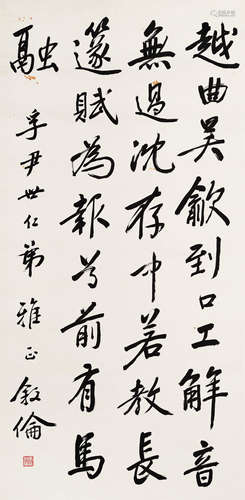 越曲吳歈到口工解音
無過沈存中若教長
篴賦為報尊前有馬
融
孚尹世仁弟雅正
敘倫